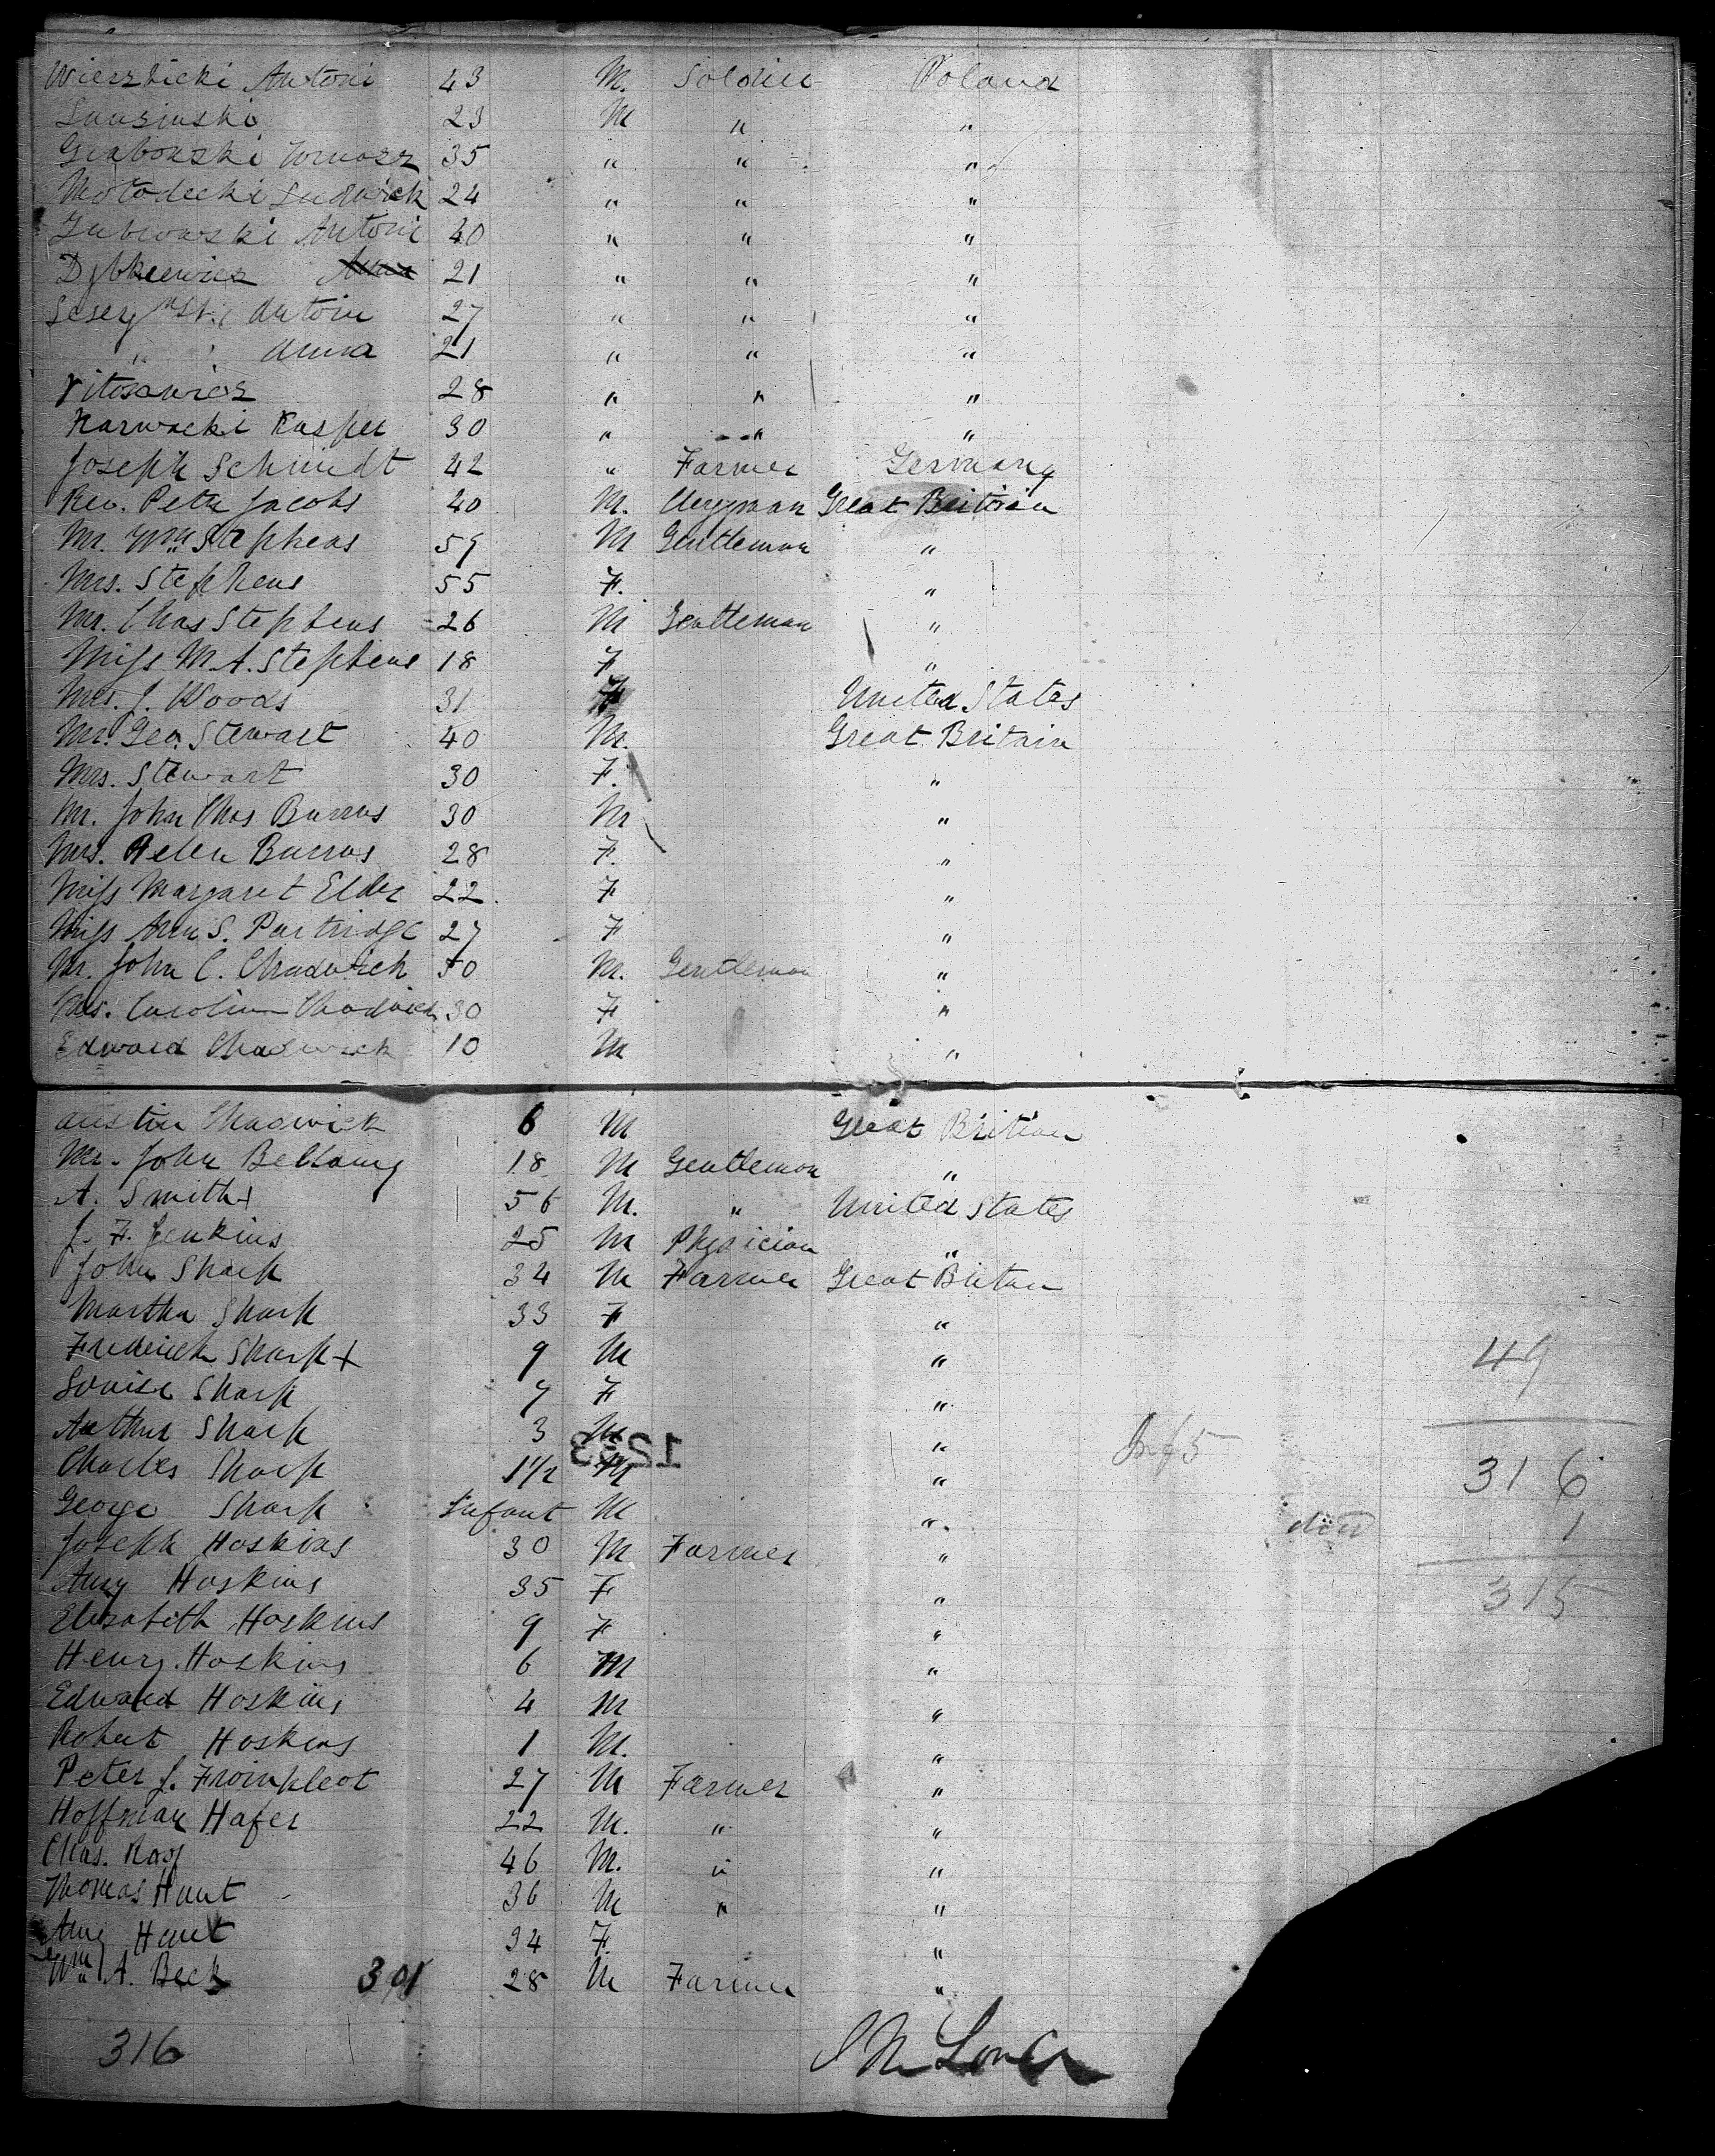 Wierzbicki Antoni 43 M. Soldier Poland
23 M " "
Grabowski Tomasz 35 " " "
Ludwick 24 " " "
Antoni 40 " " "
21 " " "
Antoni 27 " " "
" Anna 21 " " "
28 " " "
Karwacki Kasper 30 " " "
Joseph Schmidt 42 " Farmer Germany
Rev. Peter Jacobs 40 M. Clergyman Great Britain
Mr. Wm Stephens 59 M Gentleman "
Mrs. Stephens 55 F. "
Mr. Chas Stephens 26 M Gentleman "
Miss M. A. Stephens 18 F "
Mrs. J. Woods 31 F United States
Mr. Geo. Stewart 40 M. Great Britain
Mrs. Stewart 30 F. "
Mr. John Chas Burrows 30 M "
Mrs. Helen Burrows 28 F. "
Miss Margaret Elder 22 F "
Miss Ann S. Partridge 27 F "
Mr. John C. Chadwick 50 M. Gentleman "
Mrs. Caroline Chadwick 30 F "
Edward Chadwick 10 M "
Austin Chadwick 6 M Great Britian
Mr. John Bellamy 18 M Gentleman "
A. Smith + 56 M. " United States
J. F. Jenkins 25 M Physician "
John Sharp 34 M Farmer Great Britain
Martha Sharp 33 F "
Frederick Sharp + 9 M " 49
Louise Sharp 7 F "
Arthur Sharp 3 M " Inf 5
Charles Sharp 1 1/2 M " 316
George Sharp Infant M " died 1
Joseph Hoskins 30 M Farmer "
Amy Hoskins 35 F " 315
Elizabeth Hoskins 9 F "
Henry Hoskins 6 M "
Edward Hoskins 4 M "
Robert Hoskins 1 M. "
Peter J. 27 M Farmer "
Hoffman Hafer 22 M. " "
Chas. Ray 46 M. " "
Thomas Hunt 36 M " "
Amy Hunt 34 F. "
Wm A. Beck 301 28 M Farmer "
316